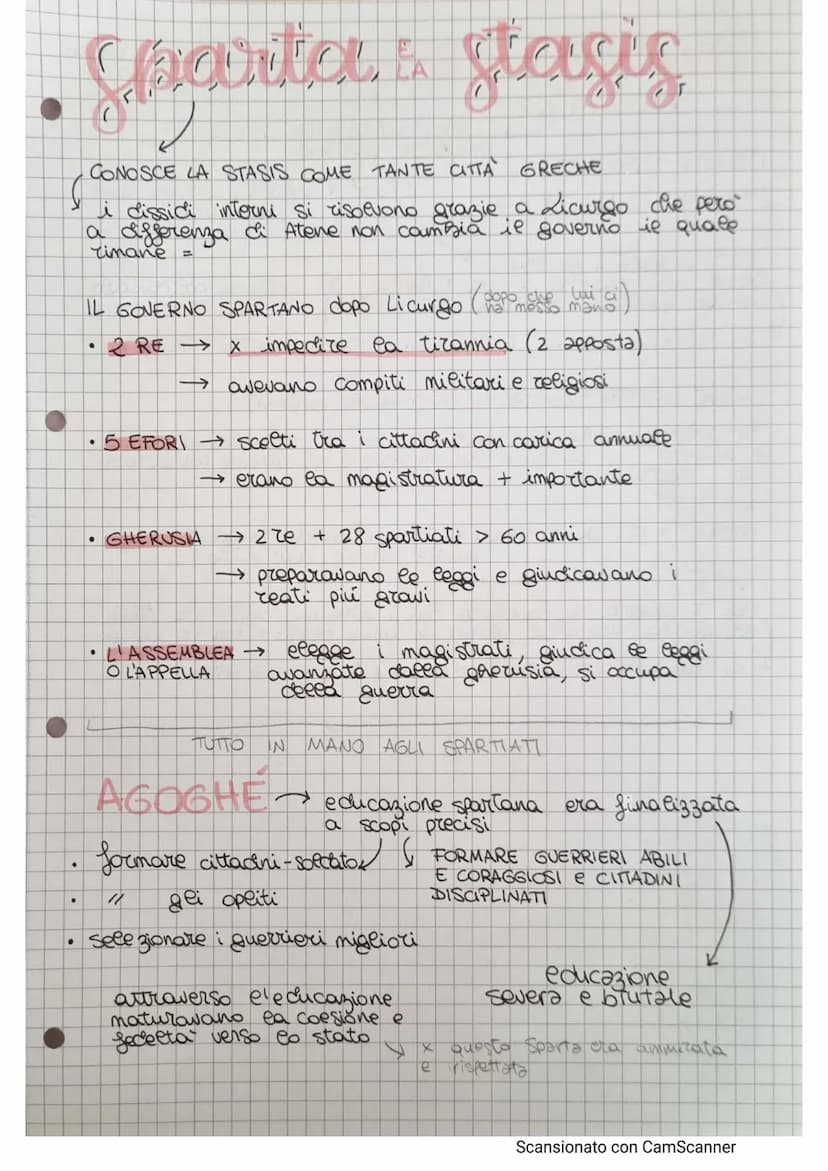 Sparta E LA stasis
CONOSCE LA STASIS COME TANTE CITTÀ GRECHE
i dissidi interni si risolvono grazie a Licurgo che però
a differenza di Atene non cambia il governo il quale
rimane =
IL GOVERNO SPARTANO dopo Licurgo (dopo che lui ci
ha messo mano)
• 2 RE → x impedire la tirannia (2 apposta)
→ avevano compiti militari e religiosi
• 5 EFORI → scelti tra i cittadini con carica annuale
→ erano la magistratura + importante
• GHERUSIA → 2 re + 28 spartiati > 60 anni
→ preparavano le leggi e giudicavano i
reati più gravi
• L'ASSEMBLEA → elegge i magistrati, giudica le leggi
O L'APPELLA avanzate dalla gherusia, si occupa
della guerra
TUTTO IN MANO AGLI SPARTIATI
AGOGHÉ → educazione spartana era finalizzata
a scopi precisi
• formare cittadini-soldato
FORMARE GUERRIERI ABILI
E CORAGGIOSI e CITTADINI
DISCIPLINATI
• " gli opliti
• selezionare i guerrieri migliori
educazione
severa e brutale
attraverso l'educazione
maturavano la coesione e
fedeltà verso lo stato
x questo Sparta era ammirata
e rispettata
Scansionato con CamScanner